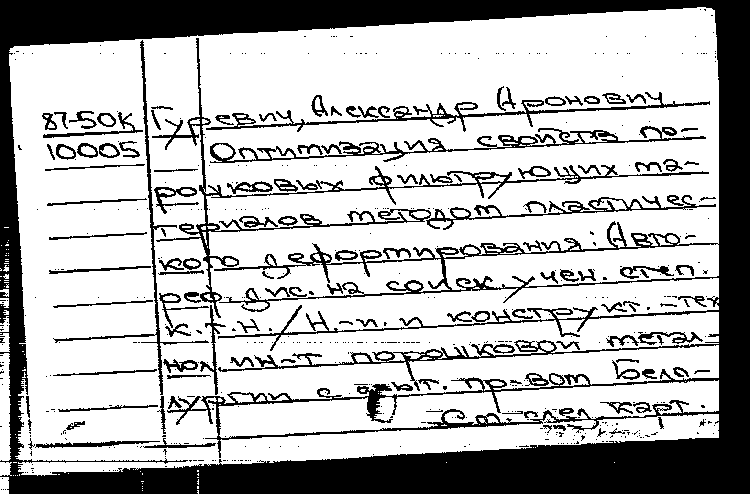 87-50К Гуревич, Александр Аронович.
10005 Оптимизация свойств по-
рошковых фильтрующих ма-
териалов методом пластичес-
кого деформирования: Авто-
реф. дис. на соиск. учен. степ.
к.т.н. / Н.-и. и конструкт.-тех
нол. ин-т порошковой метал-
лургии с опыт. пр-вом Бело-
См. след. карт.